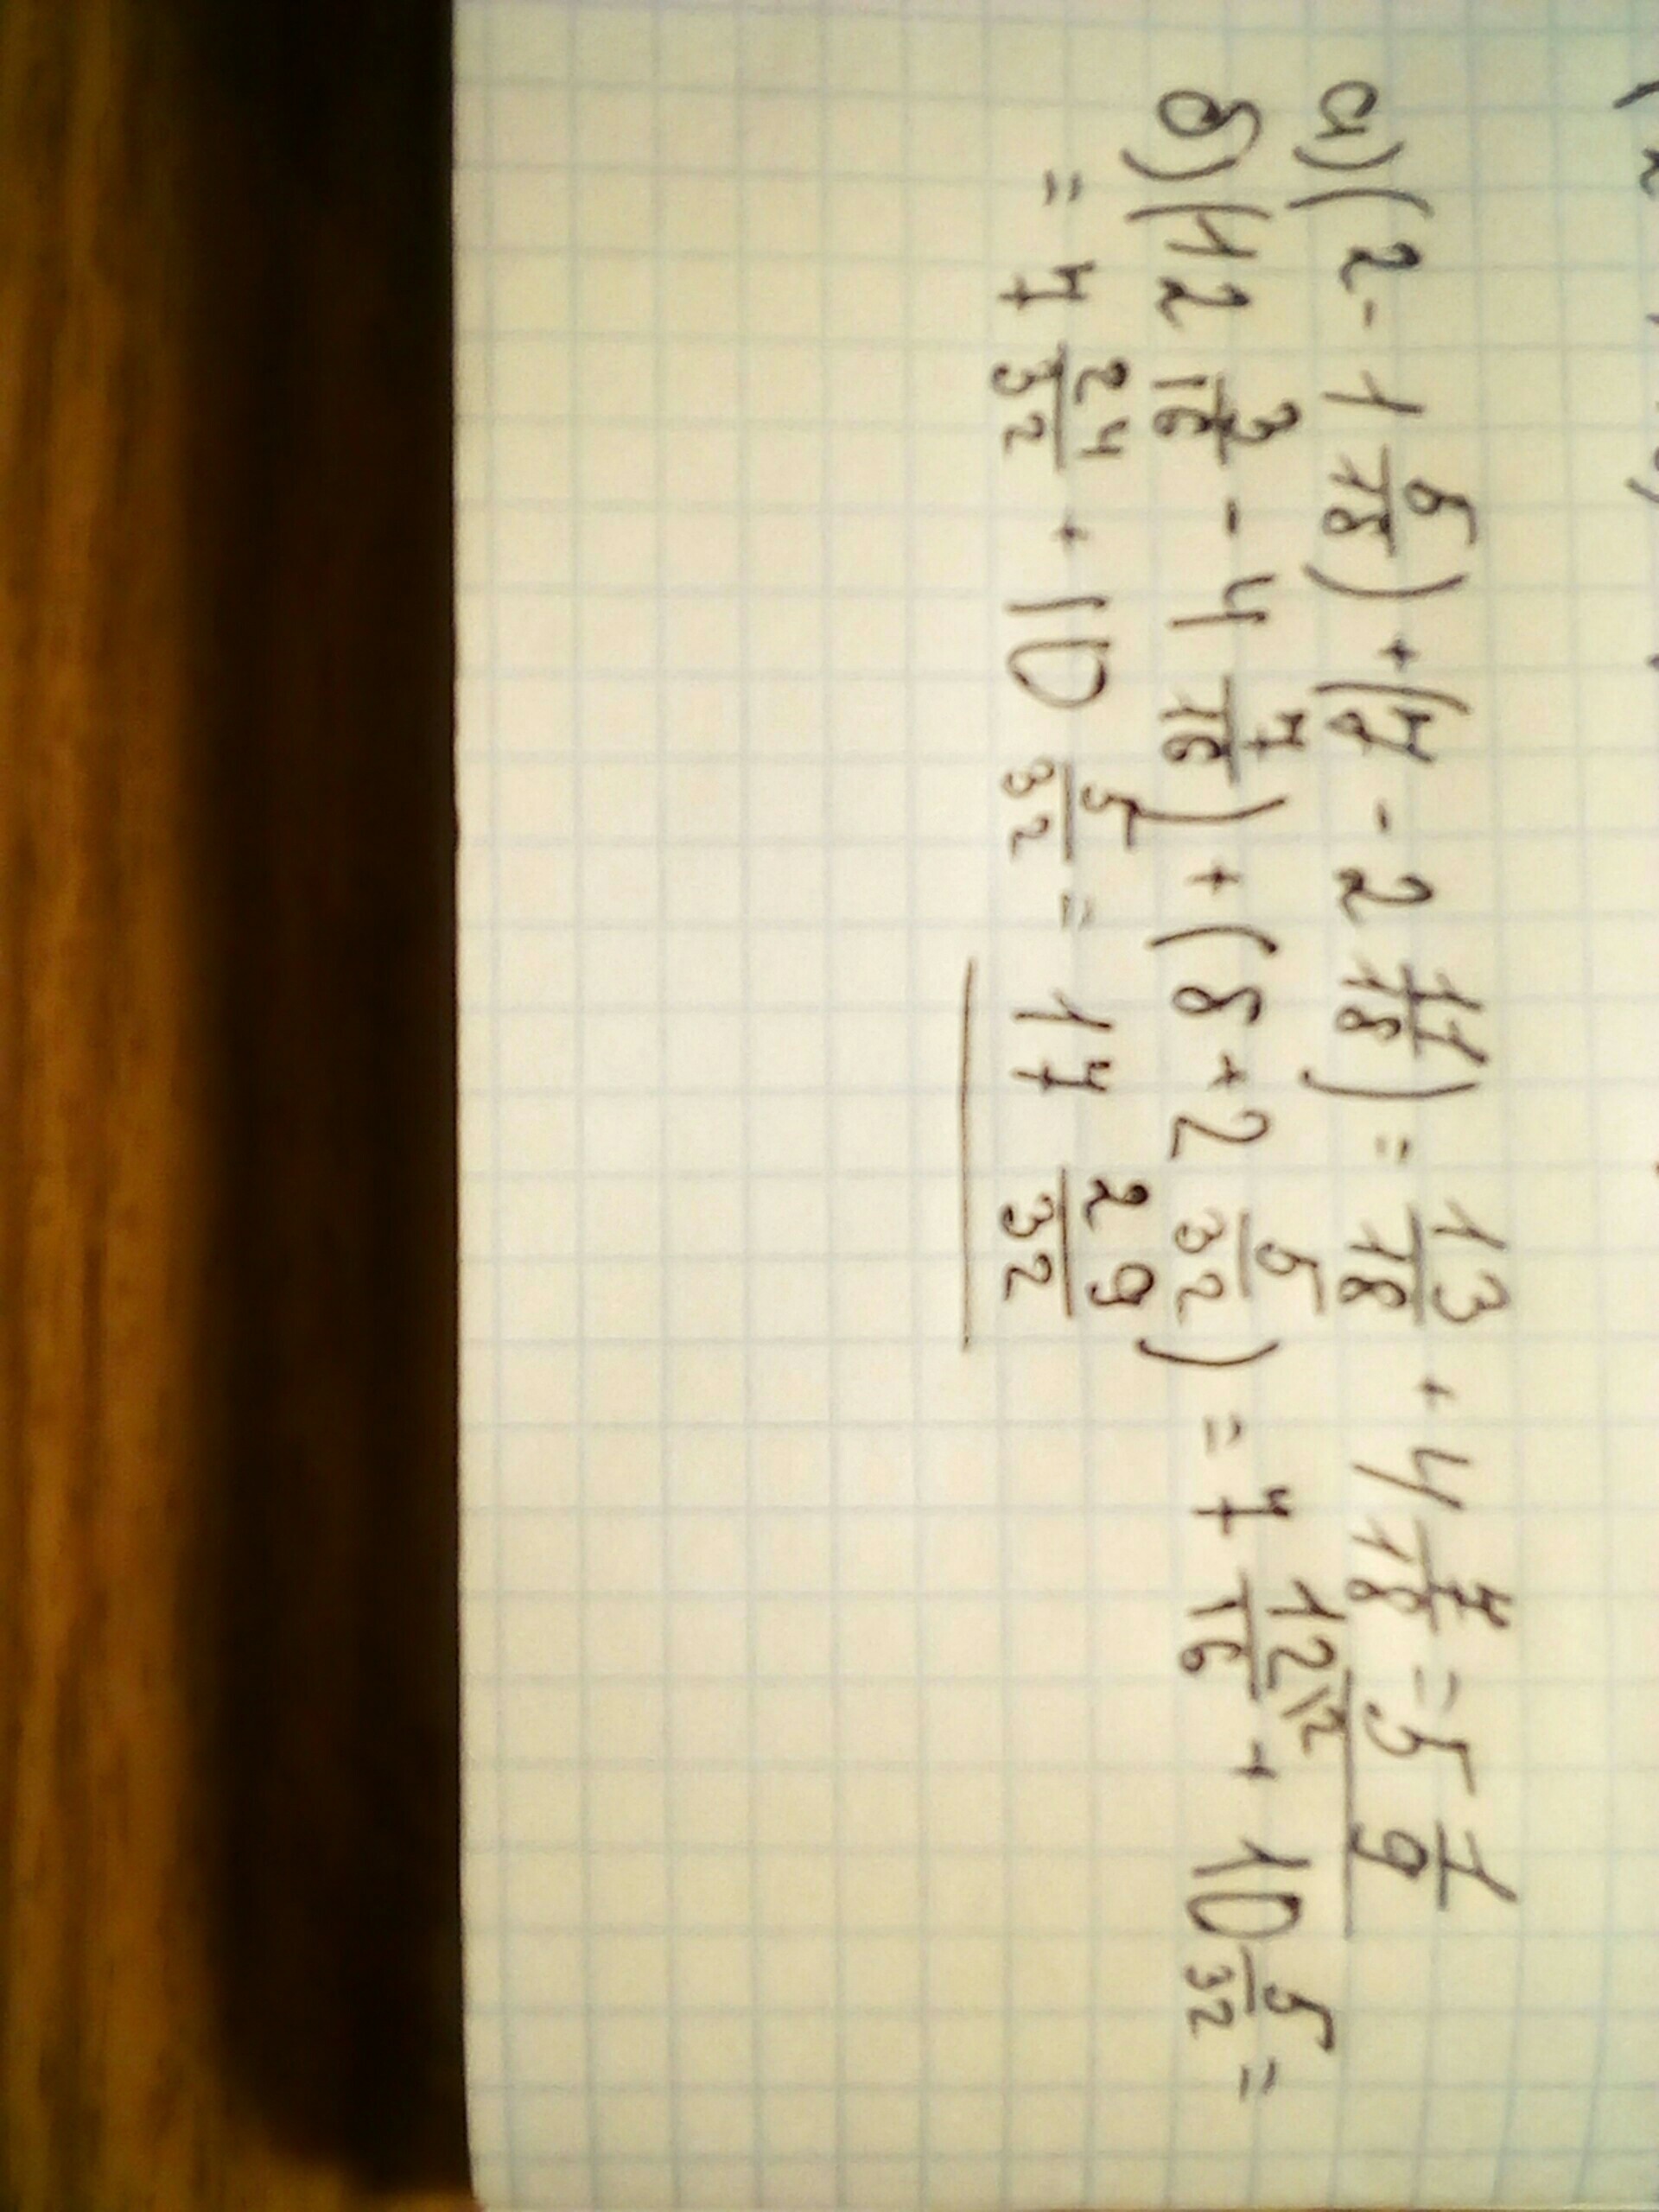 а) (2 - 1 5/18) + (7 - 2 11/18) = 13/18 + 4 7/18 = 5 1/9
б) (12 3/16 - 4 7/16) + (8 + 2 5/32) = 7 12/16 \2 + 10 5/32 =
= 7 24/32 + 10 5/32 = 17 29/32